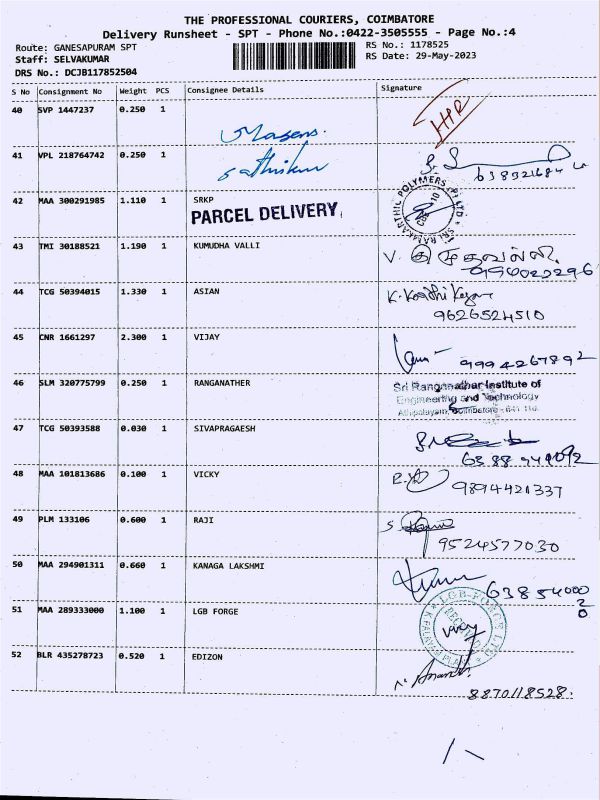 THE PROFESSIONAL COURIERS, COIMBATORE
Delivery Runsheet - SPT - Phone No.:0422-3505555 - Page No.:4
Route: GANESAPURAM SPT
RS No.: 1178525
Staff: SELVAKUMAR
RS Date: 29-May-2023
DRS No.: DCJB117852504
S No Consignment No Weight PCS Consignee Details Signature
40 SVP 1447237 0.250 1
41 VPL 218764742 0.250 1
42 MAA 300291985 1.110 1 SRKP
PARCEL DELIVERY
43 TMI 30188521 1.190 1 KUMUDHA VALLI
44 TCG 50394015 1.330 1 ASIAN
9626524510
45 CNR 1661297 2.300 1 VIJAY
9994267892
46 SLM 320775799 0.250 1 RANGANATHER
Sri Ranganathar Institute of
Engineering and Technology
Athipalayam, Coimbatore - 641 110.
47 TCG 50393588 0.030 1 SIVAPRAGAESH
48 MAA 101813686 0.100 1 VICKY
9894421337
49 PLM 133106 0.600 1 RAJI
9524577030
50 MAA 294901311 0.660 1 KANAGA LAKSHMI
6385400020
51 MAA 289333000 1.100 1 LGB FORGE
52 BLR 435278723 0.520 1 EDIZON
8870118528.